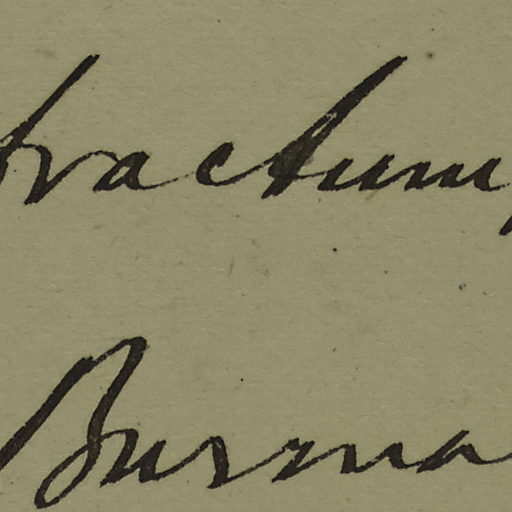 tractum,
Burma